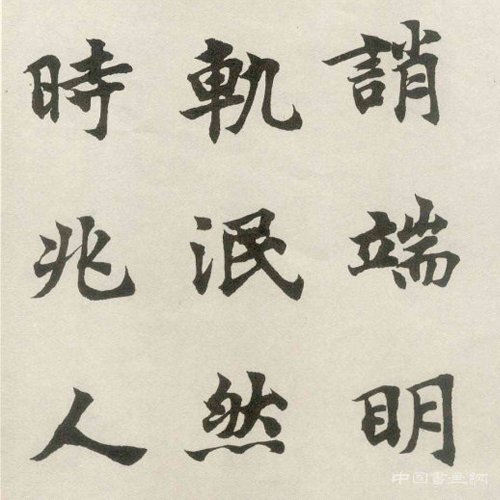 誚端明
軌泯然
時兆人
中国書画網